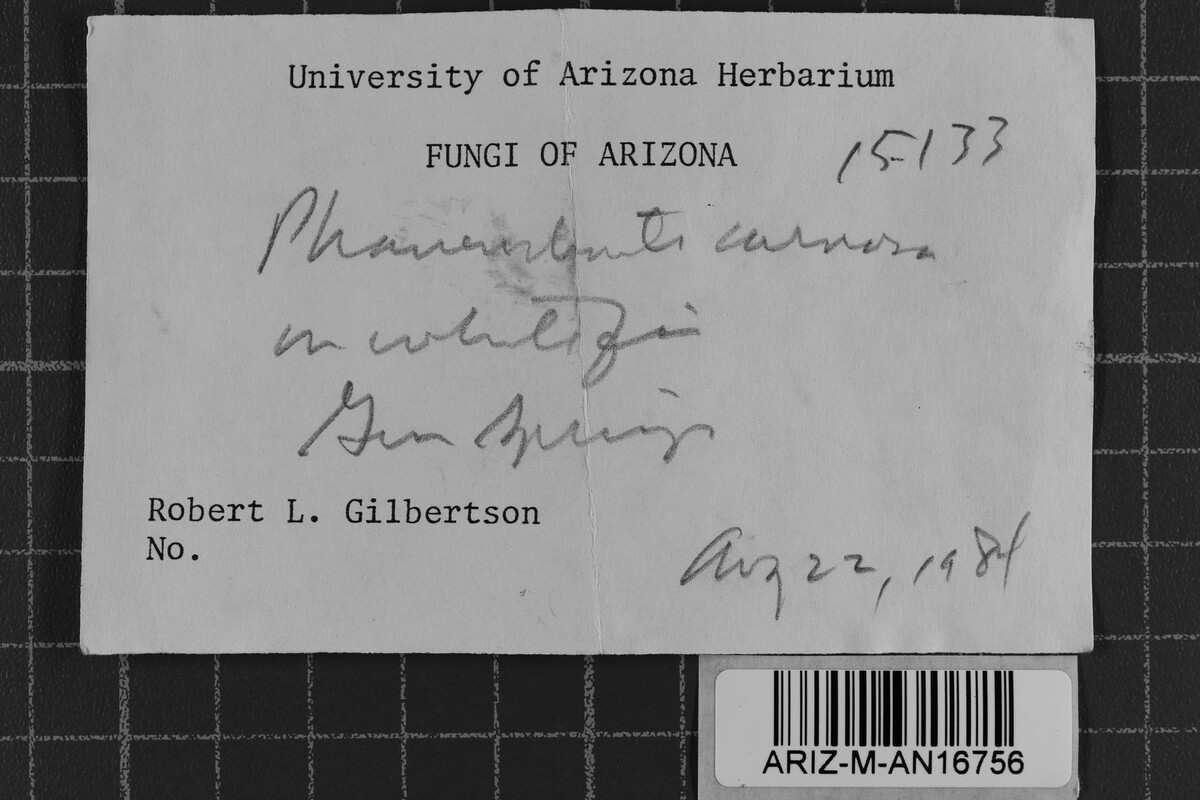 University of Arizona Herbarium
FUNGI OF ARIZONA
15133
Phanerochaete carnosa
on white fir
Gem Springs
Robert L. Gilbertson
No.
Aug 22, 1984
ARIZ-M-AN16756